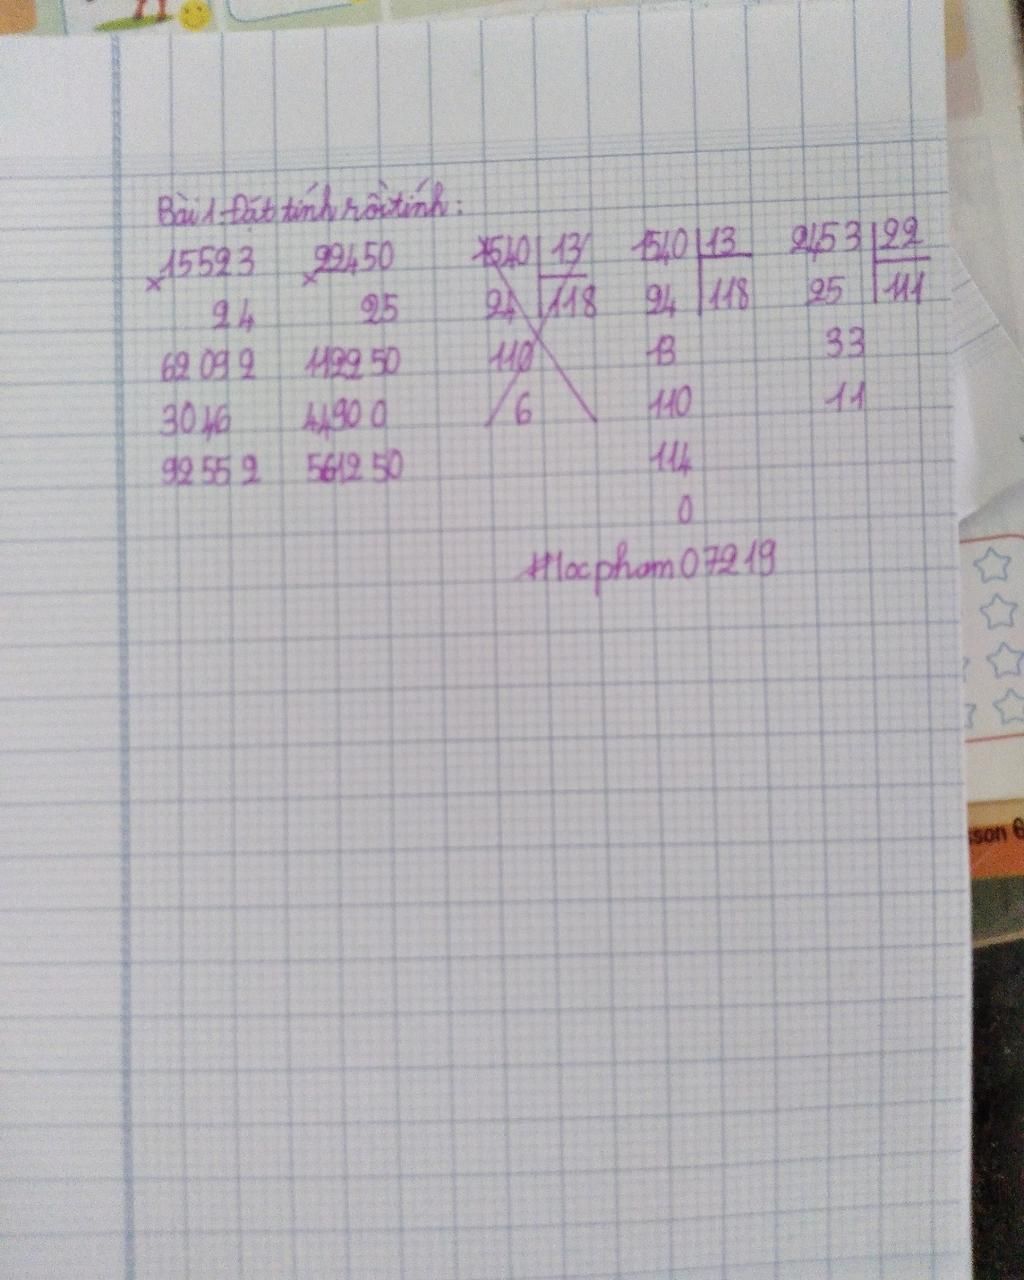 Bài 1: Đặt tính rồi tính:
15523 22450 1540 13 1540 13 2453 22
x x
24 25 24 118 24 118 25 111
62092 112250 110 13 33
3046 44900 6 110 11
92552 561250 114
0
#locpham07219
son 6